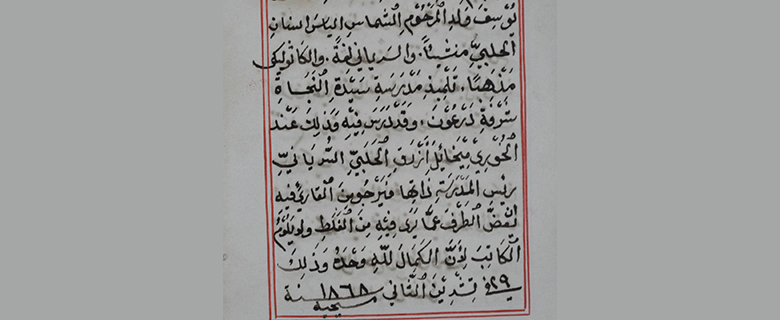 يوسف ولد المرحوم الشماس الياس استانى
الحلبيّ منشيًا. والسرياني لغةً. والكاثوليكى
مذهبًا. تلميذ مدرسة سيّدة النجاة
شرفة درعون. وقد درس فيه وذلك عند
الخوري ميخائيل أزرق الحلبيّ السريانيّ
ريس المدرسة ذاتها فيرجو من القارئ فيه
ان يغض الطرف عمّا يرى فيه من الغلط ولا يلوم
الكاتب لأنّ الكمال للّه وحده وذلك
في ٢٩ تشرين الثاني سنة ١٨٦٨
مسيحيه